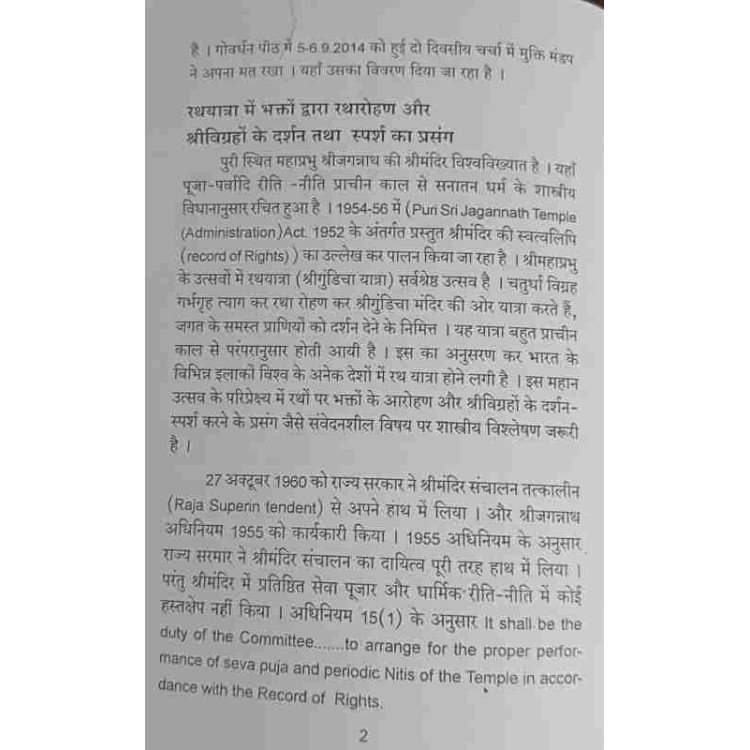 है । गोवर्धन पीठ में 5-6.9.2014 को हुई दो दिवसीय चर्चा में मुक्ति मंडप
ने अपना मत रखा । यहाँ उसका विवरण दिया जा रहा है ।
रथयात्रा में भक्तों द्वारा रथारोहण और
श्रीविग्रहों के दर्शन तथा स्पर्श का प्रसंग
पुरी स्थित महाप्रभु श्रीजगन्नाथ की श्रीमंदिर विश्वविख्यात है । यहाँ
पूजा-पर्वादि रीति -नीति प्राचीन काल से सनातन धर्म के शास्त्रीय
विधानानुसार रचित हुआ है । 1954-56 में (Puri Sri Jagannath Temple
(Administration)Act. 1952 के अंतर्गत प्रस्तुत श्रीमंदिर की स्वत्वलिपि
(record of Rights) ) का उल्लेख कर पालन किया जा रहा है । श्रीमहाप्रभु
के उत्सवों में रथयात्रा (श्रीगुंडिचा यात्रा) सर्वश्रेष्ठ उत्सव है । चतुर्धा विग्रह
गर्भगृह त्याग कर रथा रोहण कर श्रीगुंडिचा मंदिर की ओर यात्रा करते हैं,
जगत के समस्त प्राणियों को दर्शन देने के निमित्त । यह यात्रा बहुत प्राचीन
काल से परंपरानुसार होती आयी है । इस का अनुसरण कर भारत के
विभिन्न इलाकों विश्व के अनेक देशों में रथ यात्रा होने लगी है । इस महान
उत्सव के परिप्रेक्ष्य में रथों पर भक्तों के आरोहण और श्रीविग्रहों के दर्शन-
स्पर्श करने के प्रसंग जैसे संवेदनशील विषय पर शास्त्रीय विश्लेषण जरूरी
है ।
27 अक्टूबर 1960 को राज्य सरकार ने श्रीमंदिर संचालन तत्कालीन
(Raja Superin tendent) से अपने हाथ में लिया । और श्रीजगन्नाथ
अधिनियम 1955 को कार्यकारी किया । 1955 अधिनियम के अनुसार
राज्य सरमार ने श्रीमंदिर संचालन का दायित्व पूरी तरह हाथ में लिया ।
परंतु श्रीमंदिर में प्रतिष्ठित सेवा पूजार और धार्मिक रीति-नीति में कोई
हस्तक्षेप नहीं किया । अधिनियम 15(1) के अनुसार It shall be the
duty of the Committee.......to arrange for the proper perfor-
mance of seva puja and periodic Nitis of the Temple in accor-
dance with the Record of Rights.
2